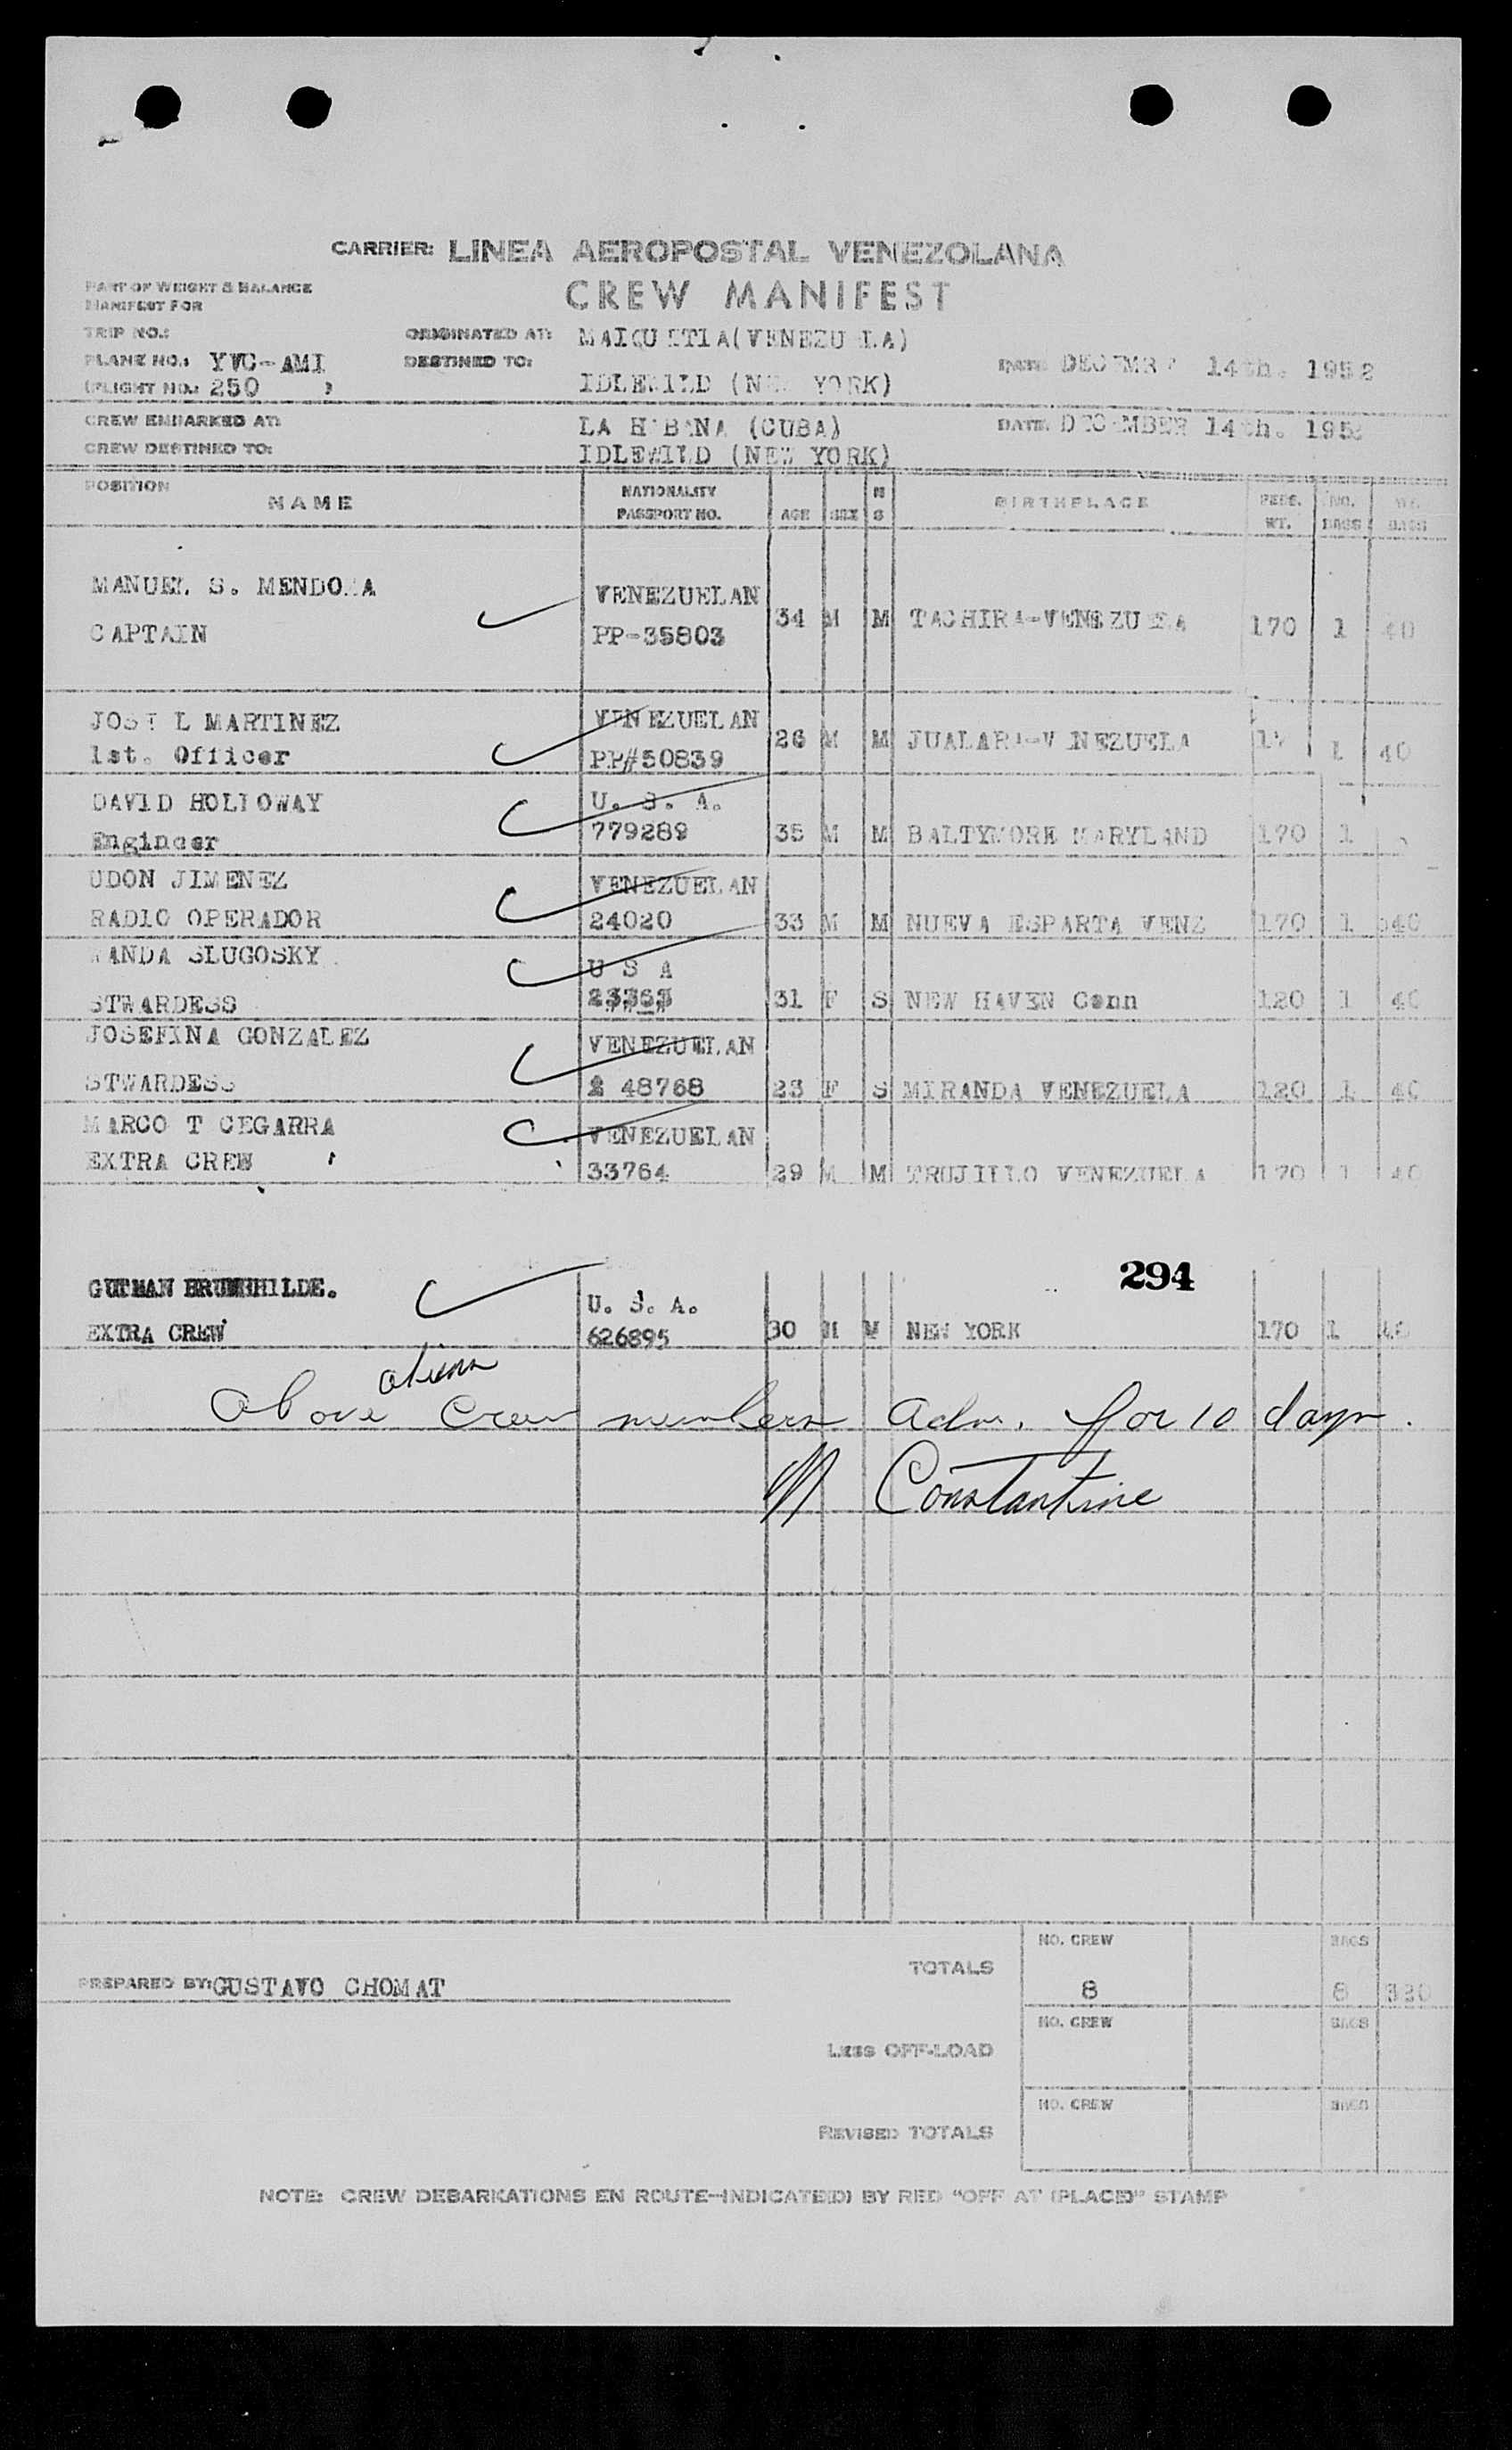 CARRIER: LINEA AEROPOSTAL VENEZOLANA
PART OF WEIGHT & BALANCE
MANIFEST FOR
CREW MANIFEST
TRIP NO.: ORIGINATED AT: MAIQUETIA(VENEZUELA)
PLANE NO.: YVC-AMI DESTINED TO: DATE: DECEMBER 14th. 1952
(FLIGHT NO.: 250 ) IDLEWILD (NEW YORK)
CREW EMBARKED AT: LA HABANA (CUBA) DATE: DECEMBER 14th. 195
CREW DESTINED TO: IDLEWILD (NEW YORK)
POSITION NAME NATIONALITY PASSPORT NO. AGE SEX M S BIRTHPLACE PERS. WT. NO. BAGS WT. BAGS
MANUEL S. MENDOZA VENEZUELAN
CAPTAIN PP-35803 34 M M TACHIRA-VENEZUELA 170 1 40
JOSE L MARTINEZ VENEZUELAN
1st. Officer PP#50839 26 M M JUALARA-VENEZUELA 1 40
DAVID HOLLOWAY U. S. A.
Engineer 779289 35 M M BALTYMORE MARYLAND 170 1
UDON JIMENEZ VENEZUELAN
RADIO OPERADOR 24020 33 M M NUEVA ESPARTA VENZ 170 1 40
WANDA SLUGOSKY U S A
STWARDESS 31 F S NEW HAVEN Conn 120 1 40
JOSEFINA GONZALEZ VENEZUELAN
STWARDESS 48768 23 F S MIRANDA VENEZUELA 120 1 40
MARCO T CEGARRA VENEZUELAN
EXTRA CREW 33764 29 M M TRUJILLO VENEZUELA 170 1 40
294
GUTMAN BRUNHILDE. U. S. A.
EXTRA CREW 626895 30 M M NEW YORK 170 1
aliens
Above Crew members Adm. for 10 days.
Constantine
PREPARED BY: GUSTAVO CHOMAT
TOTALS NO. CREW 8 BAGS 8 320
LESS OFF-LOAD NO. CREW BAGS
REVISED TOTALS NO. CREW BAGS
NOTE: CREW DEBARKATIONS EN ROUTE-INDICATE(D) BY RED "OFF AT (PLACE)" STAMP